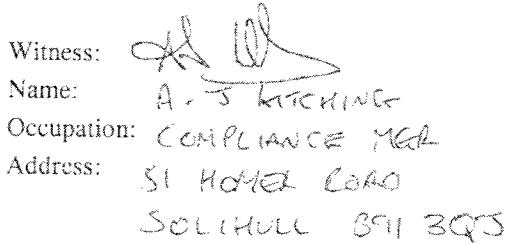 Witness:
Name: A. J KITCHING
Occupation: COMPLIANCE MGR
Address: 51 HOMER ROAD
SOLIHULL B91 3QJ